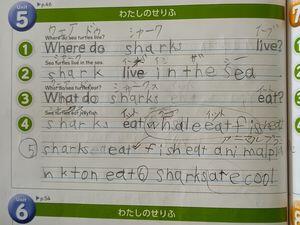 Unit 5 p.46 わたしのせりふ
ウェア ドゥ シャーク イーブ
Where do sea turtles live?
1 Where do sharks live?
Sea turtles live in the sea.
2 shark live in the sea
What do sea turtles eat?
3 What do sharks eat?
Sea turtles eat jellyfish.
4 sharks eat whale eat fish eat
5 sharks eat fish eat animal pla
nkton eat 6 sharks are cool
Unit 6 p.54 わたしのせりふ